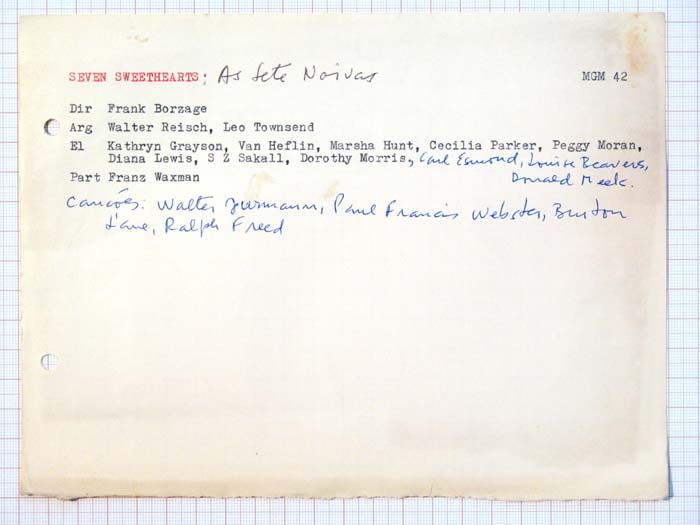 SEVEN SWEETHEARTS: As Sete Noivas MGM 42
Dir Frank Borzage
Arg Walter Reisch, Leo Townsend
El Kathryn Grayson, Van Heflin, Marsha Hunt, Cecilia Parker, Peggy Moran,
Diana Lewis, S Z Sakall, Dorothy Morris, Carl Esmond, Louise Beavers,
Donald Meek.
Part Franz Waxman
Canções: Walter Jurmann, Paul Francis Webster, Burton
Lane, Ralph Freed